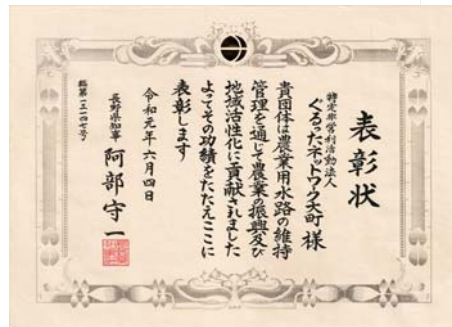 表彰状
特定非営利活動法人
ぐるったネットワーク大町 様
貴団体は農業用水路の維持
管理を通じて農業の振興及び
地域活性化に貢献されました
よってその功績をたたえここに
表彰します
令和元年六月四日
長野県知事 阿部守一